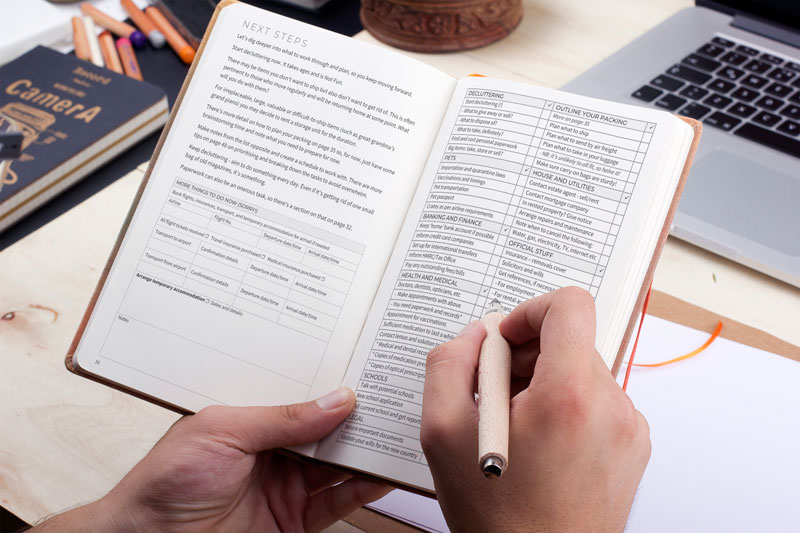 Boreett
CamerA
NEXT STEPS
Let's dig deeper into what to work through and plan, so you keep moving forward.
Start decluttering now. It takes ages and is Not Fun.
There may be items you don't want to ship but also don't want to get rid of. This is often
pertinent to those who move regularly and will be returning home at some point. What
will you do with them?
For irreplaceable, large, valuable or difficult-to-ship items (such as great grandma's
grand piano) you may decide to rent a storage unit for the duration.
There's more detail on how to plan your packing on page 35 so, for now, just have some
brainstorming time and note what you need to prepare for now.
Make notes from the list opposite and create a schedule to work with. There are more
tips on page 48 on prioritising and breaking down the tasks to avoid overwhelm.
Keep decluttering - aim to do something every day. Even if it's getting rid of one small
bag of old magazines, it's something.
Paperwork can also be an onerous task, so there's a section on that on page 32.
MORE THINGS TO DO NOW (SORRY!):
Book flights, insurance, transport, and temporary accommodation for arrival if needed
Airline
Flight No.
Departure date/time
Arrival date/time
All flight tickets received
Travel insurance purchased
Medical insurance purchased
Transport to airport
Confirmation details
Departure date/time
Arrival date/time
Transport from airport
Confirmation details
Departure date/time
Arrival date/time
Arrange temporary accommodation
Dates and details
Notes
DECLUTTERING
Start decluttering (!)
- What to give away or sell?
- What to dispose of?
- What to take, definitely?
Find and sort personal paperwork
Big items: take, store or sell?
PETS
Importation and quarantine laws
Vaccinations and timings
Pet transportation
Pet passport
Crates as per airline requirements
BANKING AND FINANCE
Keep 'home' bank account if possible
Inform credit card companies
Set up for international transfers
Inform HMRC/Tax Office
Pay any outstanding fees/bills
HEALTH AND MEDICAL
Doctors, dentists, opticians, etc
- Make appointments with above
- You need paperwork and records*
Appointment for vaccinations
Sufficient medication to last a
Contact lenses and solution
* Medical and dental
* Copies of medication
* Copies of optical
SCHOOLS
Talk with potential schools
New school application
current school and get
LEGAL
Secure important documents
Update your wills for the new country
OUTLINE YOUR PACKING
More on page 35
Plan what to ship
Plan what to send by air freight
Plan what to take in your luggage
NB: it's unlikely to all fit, so halve it!
Make sure carry on bags are sturdy!
HOUSE AND UTILITIES
Contact estate agent - sell/rent
Contact mortgage company
In rented property? Give notice
Arrange repairs and maintenance
Note when to cancel the following:
Water, gas, electricity, TV, internet etc
OFFICIAL STUFF
Insurance - removals cover
Solicitors and wills
Get references, if necessary
- For employment
- For rental